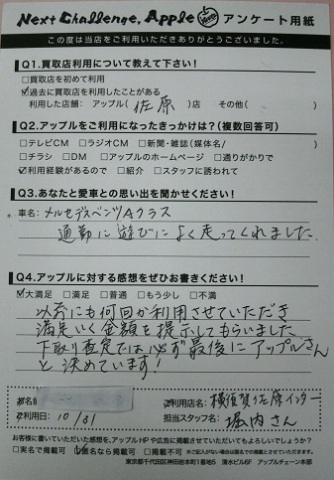 Next Challenge, Apple アンケート用紙
この度は当店をご利用いただきありがとうございました。
Q1.買取店利用について教えて下さい!
□買取店を初めて利用
☑過去に買取店を利用したことがある
利用した店舗: アップル(佐原)店 その他( )
Q2.アップルをご利用になったきっかけは?(複数回答可)
□テレビCM □ラジオCM □新聞・雑誌(媒体名/ )
□チラシ □DM □アップルのホームページ □通りがかりで
☑利用経験があるので □紹介 □スタッフに誘われて
Q3.あなたと愛車との思い出を聞かせください!
車名: メルセデスベンツAクラス
通勤に遊びによく走ってくれました
Q4.アップルに対する感想をぜひお書きください!
☑大満足 □満足 □普通 □もう少し □不満
以前にも何回か利用させていただき
満足いく金額を提示してもらいました
下取り査定では必ず最後にアップルさん
と決めています!
ご利用店名: 横須賀佐原インター
ご利用日: 10/31 担当スタッフ名: 堀内さん
お客様に書いていただいた感想を、アップルHPや広告に掲載させていただいてもよろしいでしょうか?
□実名で掲載可 ☑匿名なら掲載可 □掲載不可 ※ご記入がない場合は匿名での掲載とさせていただきます。
東京都千代田区神田岩本町1番地5 清水ビル6F アップルチェーン本部